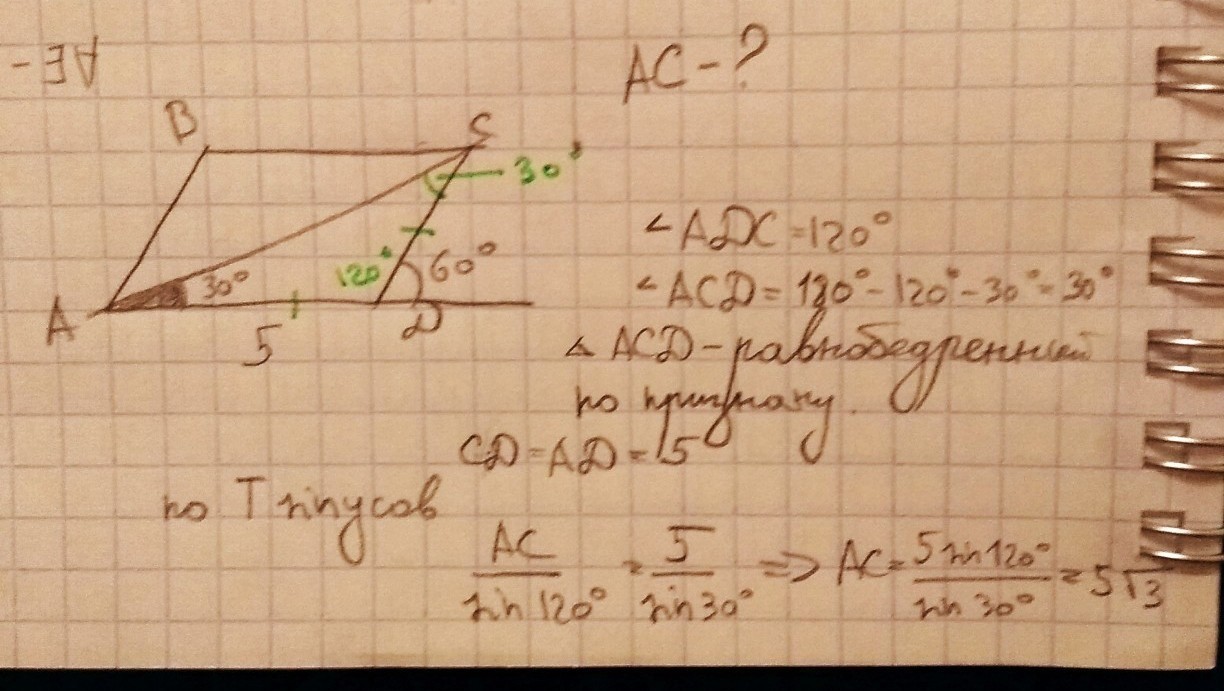 AE -
AC - ?
B
C
30°
120°
60°
30°
A
5
D
∠ADC = 120°
∠ACD = 180° - 120° - 30° = 30°
△ ACD - равнобедренный
по признаку.
CD = AD = 5
по Т синусов
AC / sin 120° = 5 / sin 30° => AC = 5 sin 120° / sin 30° = 5√3